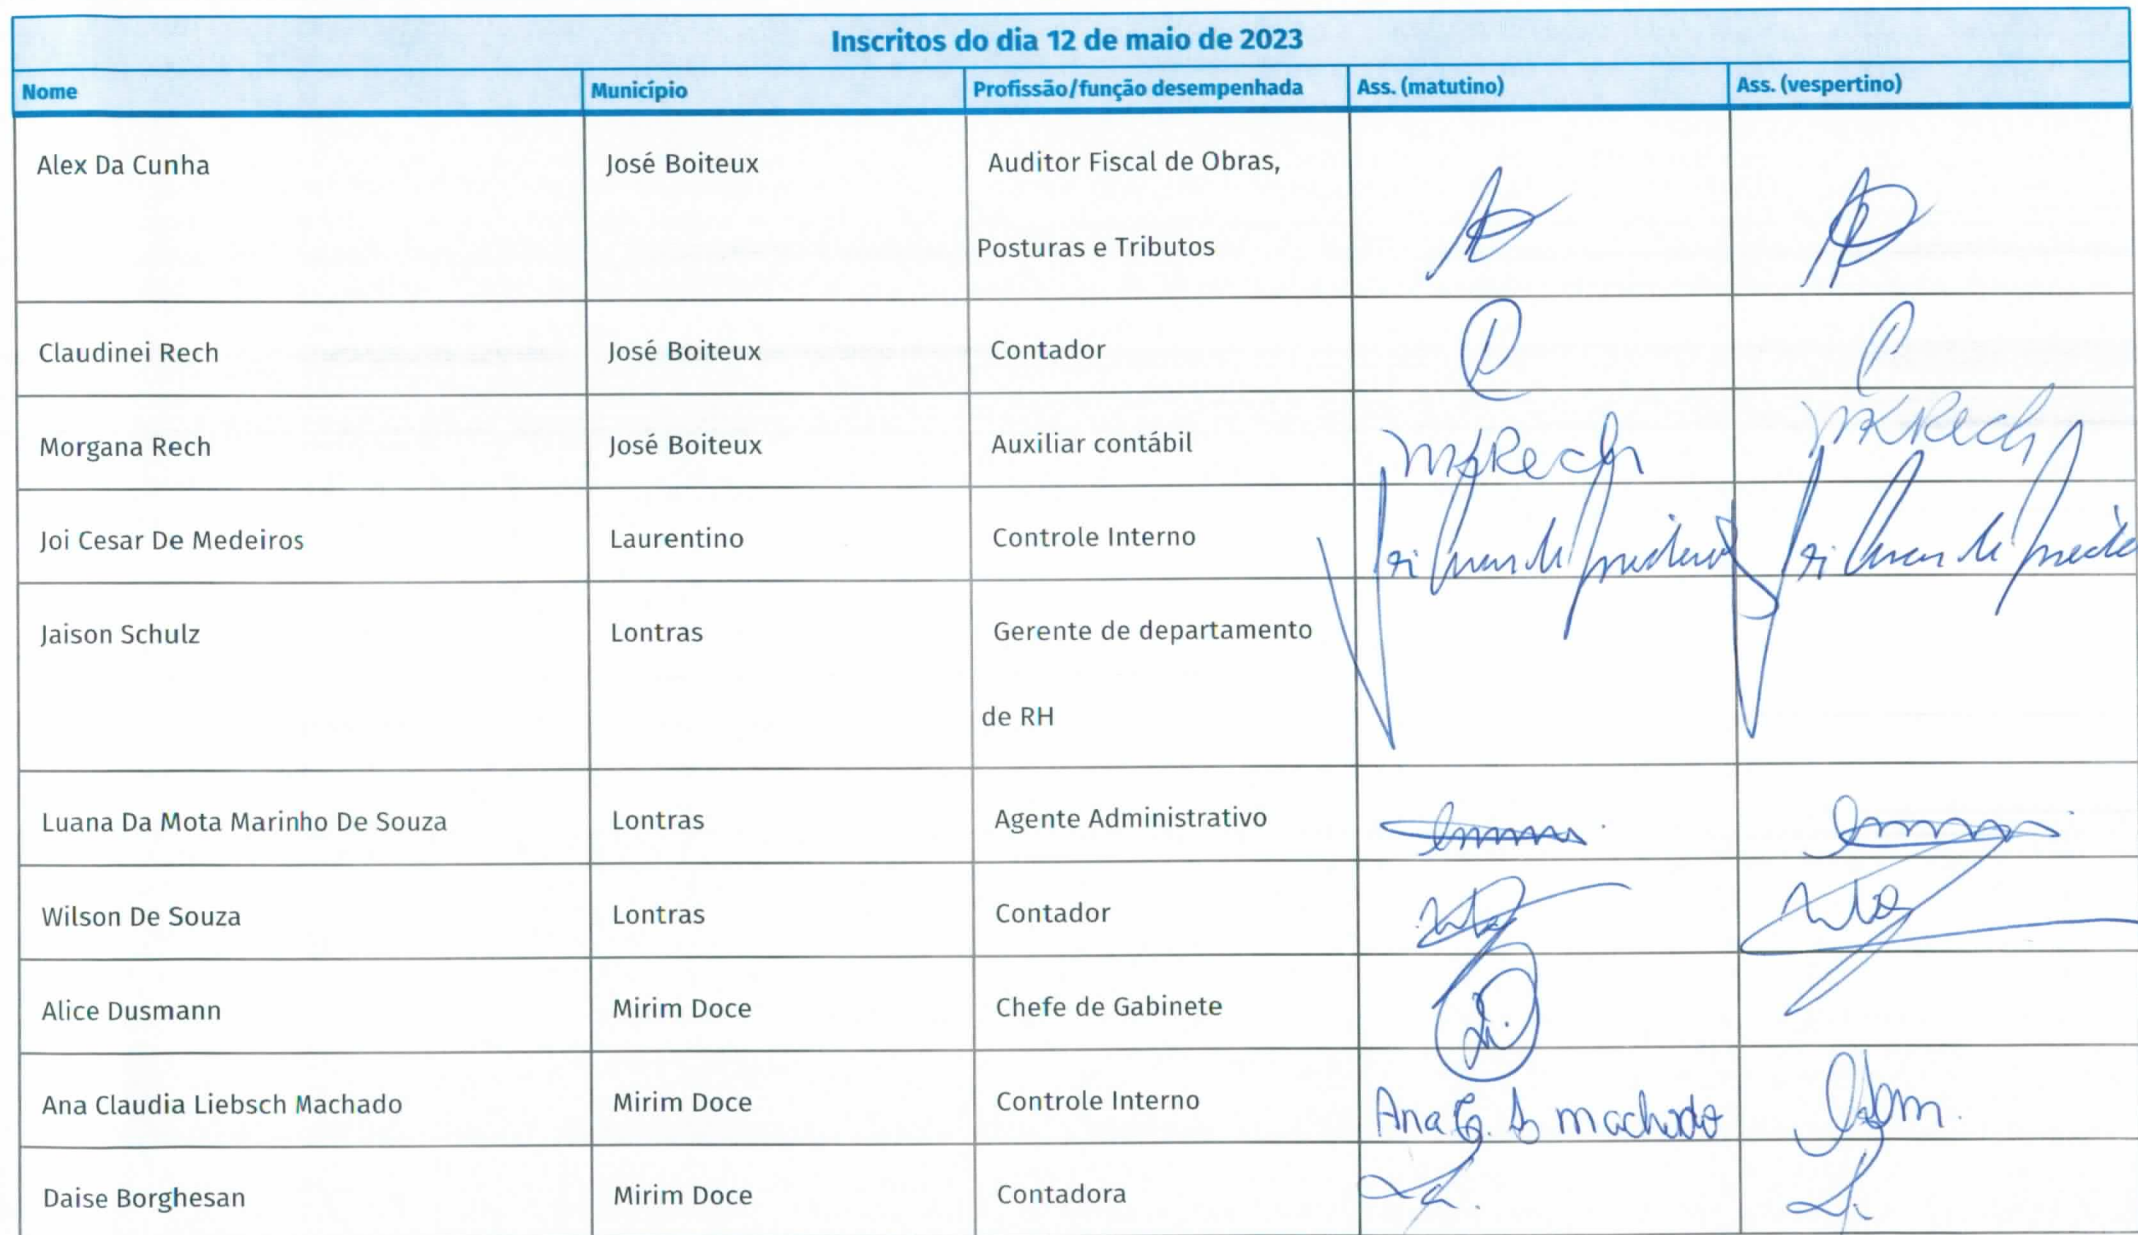 Inscritos do dia 12 de maio de 2023
Nome Município Profissão/função desempenhada Ass. (matutino) Ass. (vespertino)
Alex Da Cunha José Boiteux Auditor Fiscal de Obras,
Posturas e Tributos
Claudinei Rech José Boiteux Contador
Morgana Rech José Boiteux Auxiliar contábil MKRech MKRech
Joi Cesar De Medeiros Laurentino Controle Interno
Jaison Schulz Lontras Gerente de departamento
de RH
Luana Da Mota Marinho De Souza Lontras Agente Administrativo
Wilson De Souza Lontras Contador
Alice Dusmann Mirim Doce Chefe de Gabinete
Ana Claudia Liebsch Machado Mirim Doce Controle Interno Ana C. L machado
Daise Borghesan Mirim Doce Contadora